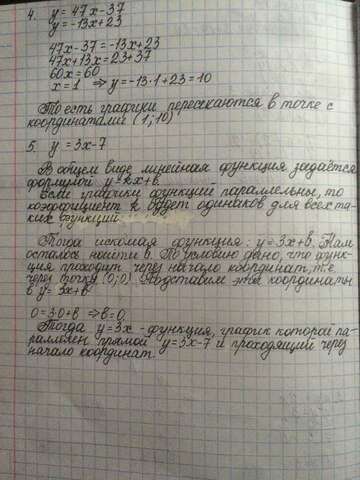 4. y = 47x-37
y = -13x+23
47x-37 = -13x+23
47x+13x = 23+37
60x = 60
x = 1 ⇒ y = -13·1+23 = 10
То есть графики пересекаются в точке с
координатами (1;10)
5. y = 3x-7
В общем виде линейная функция задаётся
формулой y = kx+b.
Если графики функций параллельны, то
коэффициент k будет одинаков для всех та-
ких функций
Тогда искомая функция: y = 3x+b. Нам
осталось найти b. По условию дано, что функ-
ция проходит через начало координат, т.е
через точку (0;0). Подставим эти координаты
в y = 3x+b
0 = 3·0+b ⇒ b = 0
Тогда y = 3x - функция, график которой па-
раллелен прямой y = 3x-7 и проходящий через
начало координат.